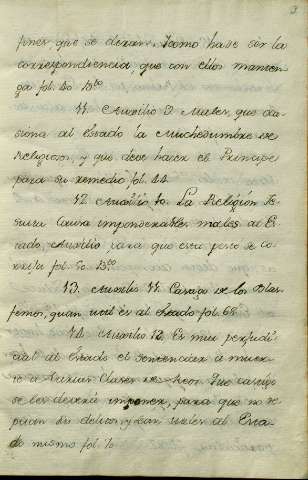 fones, que se daran. Como hade ser la
correspondiencia, que con ellos manten
ga fol. 40. B.to
11. Auxilio 9. Males, que oca
siona al Estado la Muchedumbre de
Religiosos, y que deve hacer el Principe
para su remedio fol. 44.
12. Auxilio 10. La Religión Je
suita Causa imponderables males al Es
tado, Auxilio para que esta peste se co
rrixa fol. 50. B.to
13. Auxilio 11. Castigo de los Blas
femos, quan util es al Estado fol. 68.
14. Auxilio 12. Es muy perjudi
cial al Estado el sentenciar a muer
te a varias Clases de Reos. Que castigo
se les deverá imponer, para que no se
pitan sus delitos, y sean utiles al Esta
do mismo fol. 70